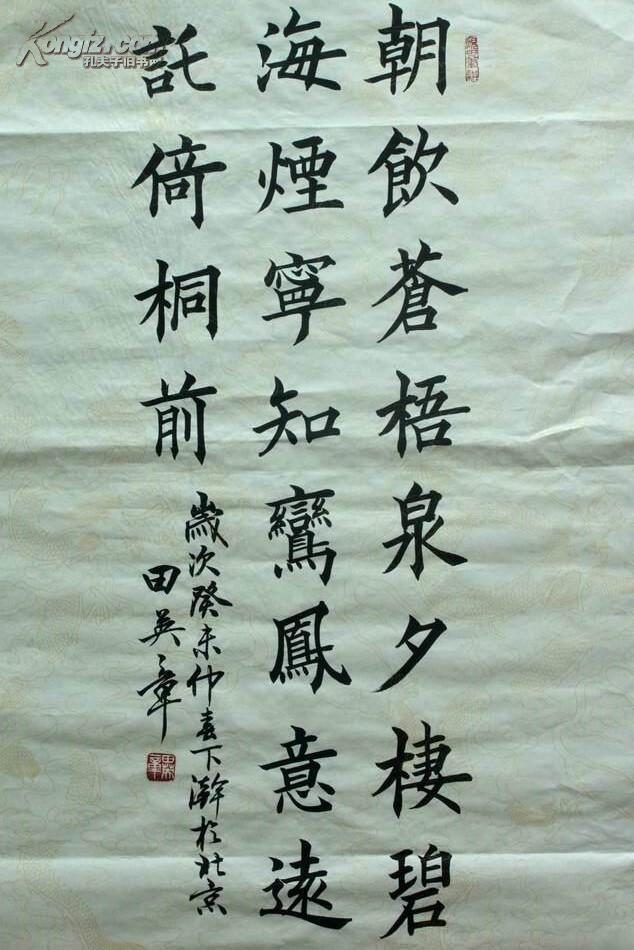 朝飲蒼梧泉夕棲碧
海煙寧知鸞鳳意遠
託倚桐前
歲次癸未仲春下澣於北京
田英章
田英章
Kongfz.com
孔夫子旧书网